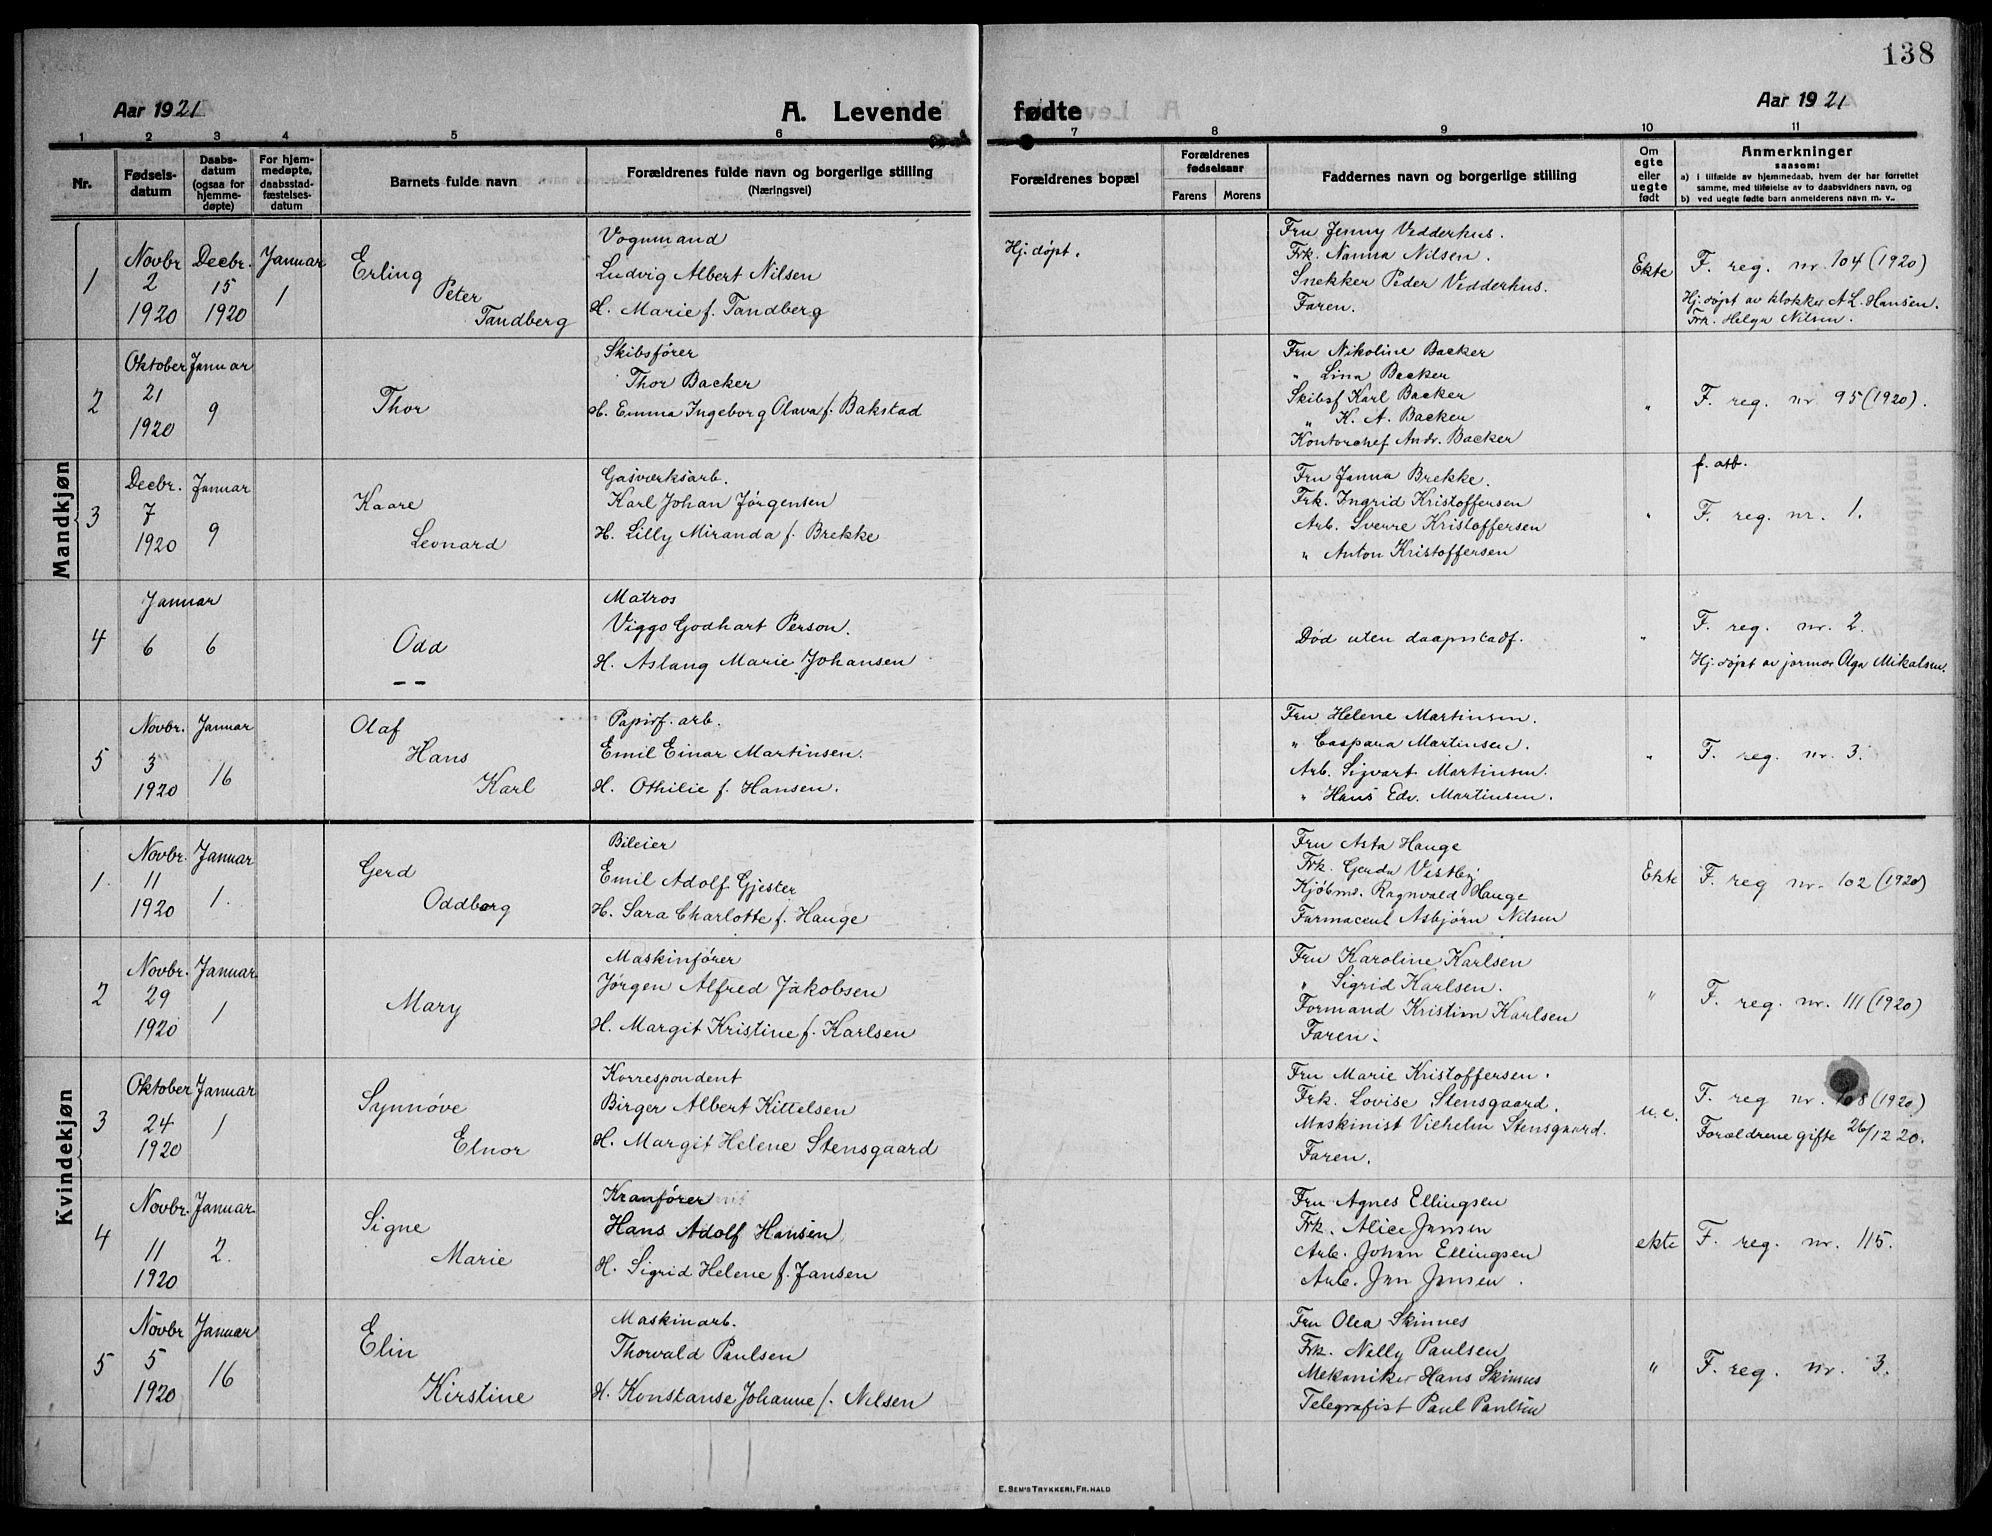 138
Aar 1921
A. Levende
fødte
Aar 1921
1 2 3 4 5 6 7 8 9 10 11
Nr.
Fødsels-
datum
Daabs-
datum
(ogsaa for
hjemme-
døpte)
For hjem-
medøpte,
daabsstad-
fæstelses-
datum
Barnets fulde navn
Forældrenes fulde navn og borgerlige stilling
(Næringsvei)
Forældrenes bopæl
Forældrenes
fødselsaar
Farens
Morens
Faddernes navn og borgerlige stilling
Om
egte
eller
uegte
født
Anmerkninger
saasom:
a) i tilfælde av hjemmedaab, hvem der har forrettet
samme, med tilføielse av to daabsvidners navn, og
b) ved uegte fødte barn anmelderens navn m. v..
Mandkjøn
1
Novbr
2
1920
Decbr.
15
1920
Januar
1
Erling
Peter
Tandberg
Vognmand
Ludvig Albert Nilsen
H. Marie f. Tandberg
Hj. døpt.
Fru Jenny Vedderhus.
Frk. Nanna Nilsen.
Snekker Peder Vedderhus.
Faren.
Ekte
F. reg. nr. 104 (1920)
Hj. døpt av klokker A L. Hansen.
Frk. Helga Nilsen.
2
Oktober
21
1920
Januar
9
Thor
Skibsfører
Thor Backer
H. Emma Ingeborg Olava f. Bakstad
Fru Nikoline Backer
" Lina Backer
Skibsf Karl Backer
" K. A. Backer
Kontorchef Andr. Backer
"
F. reg. nr 95 (1920).
3
Decbr.
7
1920
Januar
9
Kaare
Leonard
Gasverksarb.
Karl Johan Jørgensen
H. Lilly Miranda f. Brekke
Fru Janna Brekke.
Frk. Ingrid Kristoffersen
Arb. Sverre Kristoffersen
" Anton Kristoffersen
"
f. att.
F. reg. nr. 1.
4
Januar
6
6
Odd
– –
Matros
Viggo Godhart Person.
H. Aslaug Marie Johansen
Død uten daapsstadf.
"
F. reg. nr. 2.
Hj. døpt av jormor Olga Mikalsen.
5
Novbr.
3
1920
Januar
16
Olaf
Hans
Karl
Papirf. arb.
Emil Einar Martinsen.
H. Othilie f. Hansen.
Fru Helene Martinsen.
" Caspara Martinsen.
Arb. Sigvart Martinsen.
" Hans Edv. Martinsen.
"
F. reg. nr. 3.
Kvindekjøn
1.
Novbr.
11
1920
Januar
1.
Gerd
Oddborg
Bileier
Emil Adolf Gjester
H. Sara Charlotte f. Hauge
Fru Asta Hauge
Frk. Gerda Vestby
Kjøbm. Ragnvald Hauge
Farmaceut Asbjørn Nilsen
Ekte
F. reg nr. 102 (1920)
2
Novbr.
29
1920
Januar
1
Mary
Maskinfører
Jørgen Alfred Jakobsen
H. Margit Kristine f. Karlsen
Fru Karoline Karlsen
" Sigrid Karlsen.
Formand Kristian Karlsen
Faren.
"
F. reg. nr. 111 (1920)
3
Oktober
24
1920
Januar
1
Synnøve
Elnor
Korrespondent
Birger Albert Kittelsen
H. Margit Helene Stensgaard
Fru Marie Kristoffersen.
Frk. Lovise Stensgaard.
Maskinist Vilhelm Stensgaard.
Faren.
u. e.
F. reg nr. 108 (1920)
Forældrene gifte 26/12 20.
4
Novbr.
11
1920
Januar.
2.
Signe
Marie
Kranfører
Hans Adolf Hansen
H. Sigrid Helene f. Jansen
Fru Agnes Ellingsen
Frk. Alice Jansen
Arb. Johan Ellingsen
Arb. Jan Jansen.
ekte
F. reg. nr. 115.
5
Novbr
5
1920
Januar
16
Elin
Kirstine
Maskinarb.
Thorvald Paulsen
H. Konstanse Johanne f. Nilsen
Fru Olea Skinnes
Frk. Nelly Paulsen
Mekaniker Hans Skinnes
Telegrafist Paul Paulsen
"
F. reg. nr. 3.
E. SEM'S TRYKKERI, FR.HALD